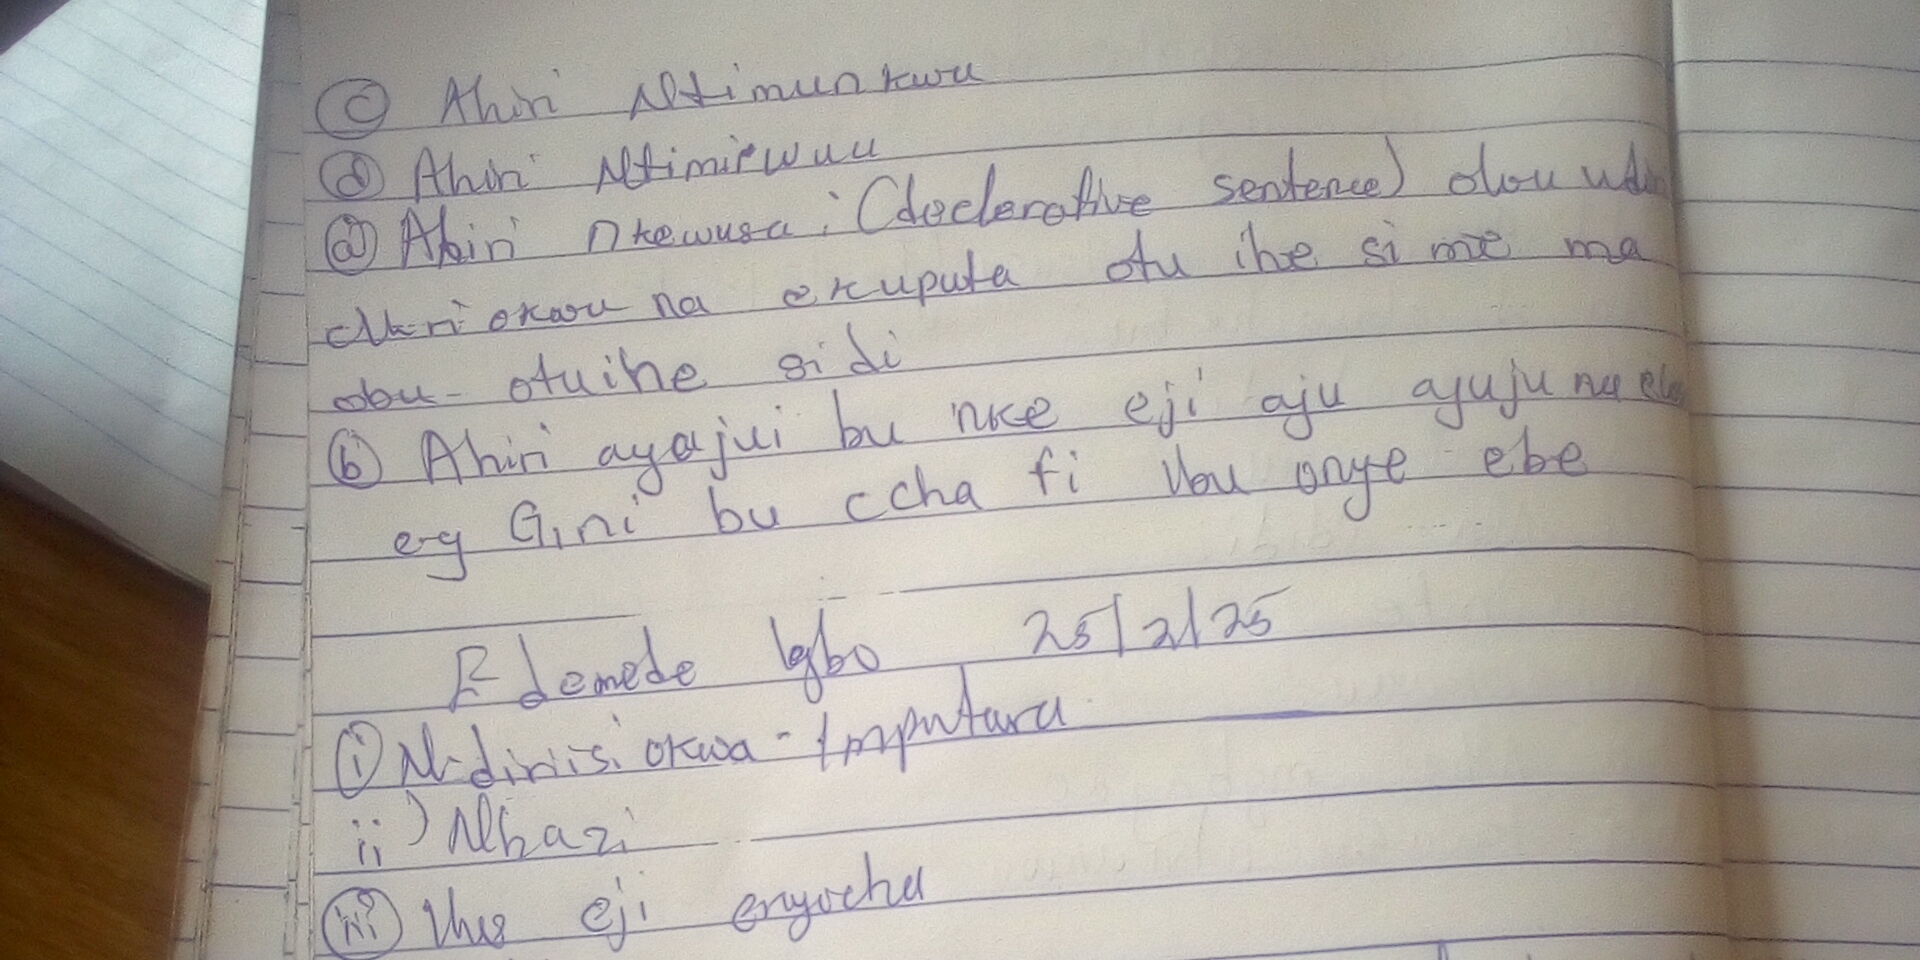 (c) Ahiri Ntimunkwu
(d) Ahiri Ntimiewuu
(a) Ahiri nkewusa: (declerative sentence) olou
okwu na ekuputa otu ihe si me ma
obu - otuihe si di
(b) Ahiri ayajui bu nke eji aju ajuju na
e-g Gini bu ccha fi Ubu onye ebe
Edemede Igbo 25/2/25
(i) Ndiriisi okwa - Imputaru
ii) Nhazi
(iii) Uhe eji enyocha